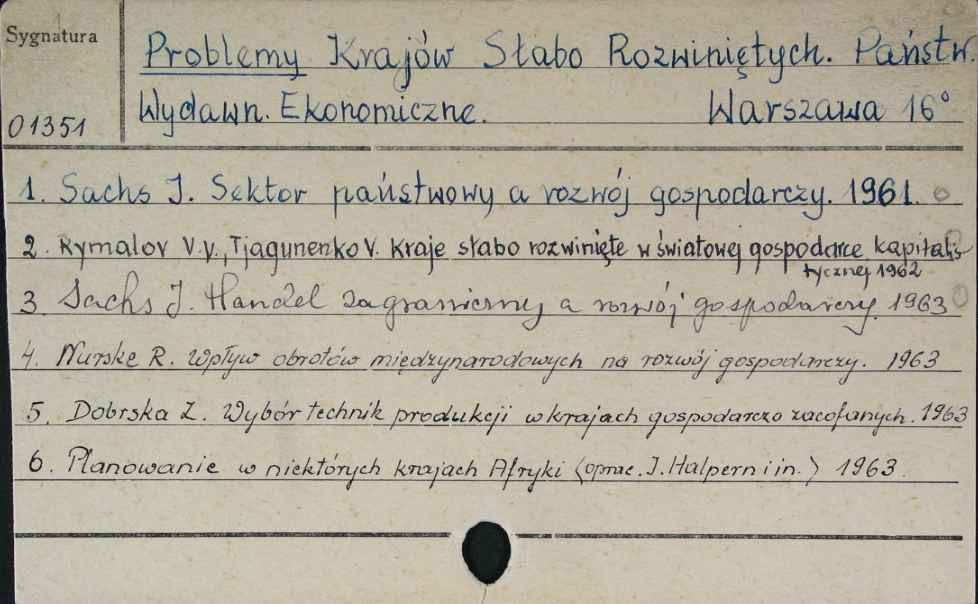 Sygnatura
Problemy Krajów Słabo Rozwiniętych. Państw.
Wydawn. Ekonomiczne. Warszawa 16°
01351
1. Sachs I. Sektor państwowy a rozwój gospodarczy. 1961.
2. Rymalov V.V., Tjagunenko V. Kraje słabo rozwinięte w światowej gospodarce kapitalis-
tycznej 1962
3. Sachs I. Handel zagraniczny a rozwój gospodarczy. 1963
4. Nurske R. Wpływ obrotów międzynarodowych na rozwój gospodarczy. 1963
5. Dobrska Z. Wybór technik produkcji w krajach gospodarczo zacofanych. 1963
6. Planowanie w niektórych krajach Afryki (oprac. I. Halpern i in.) 1963.